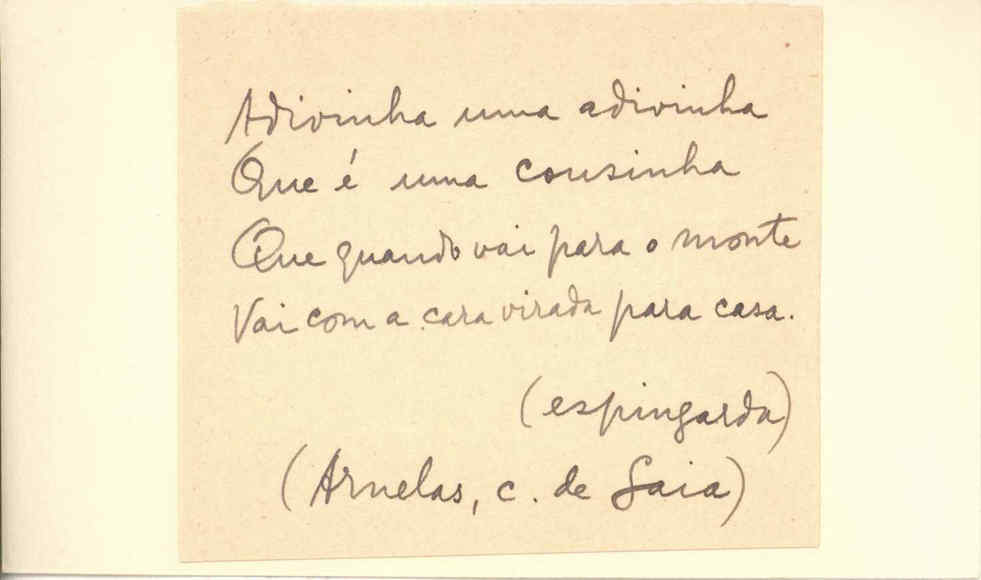 Adivinha uma adivinha
Que é uma cousinha
Que quando vai para o monte
Vai com a cara virada para casa.
(espingarda)
(Arnelas, c. de Gaia)